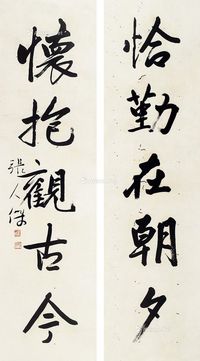 恰勤在朝夕
懷抱觀古今
張人傑